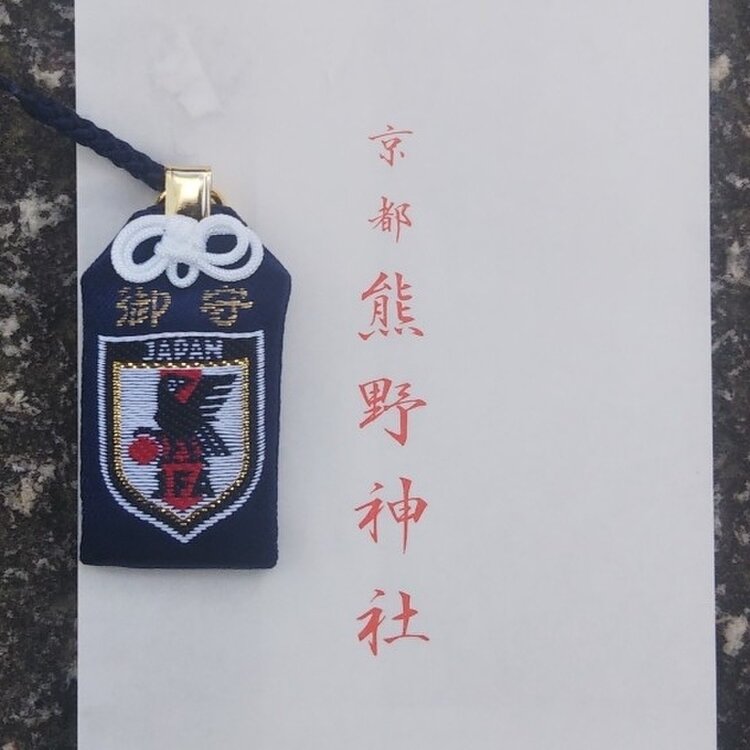 御守
JAPAN
JFA
京都熊野神社